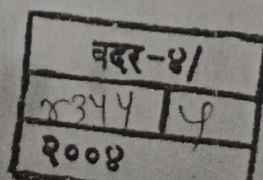 वदर-४/
४३५५ | ५
२००४